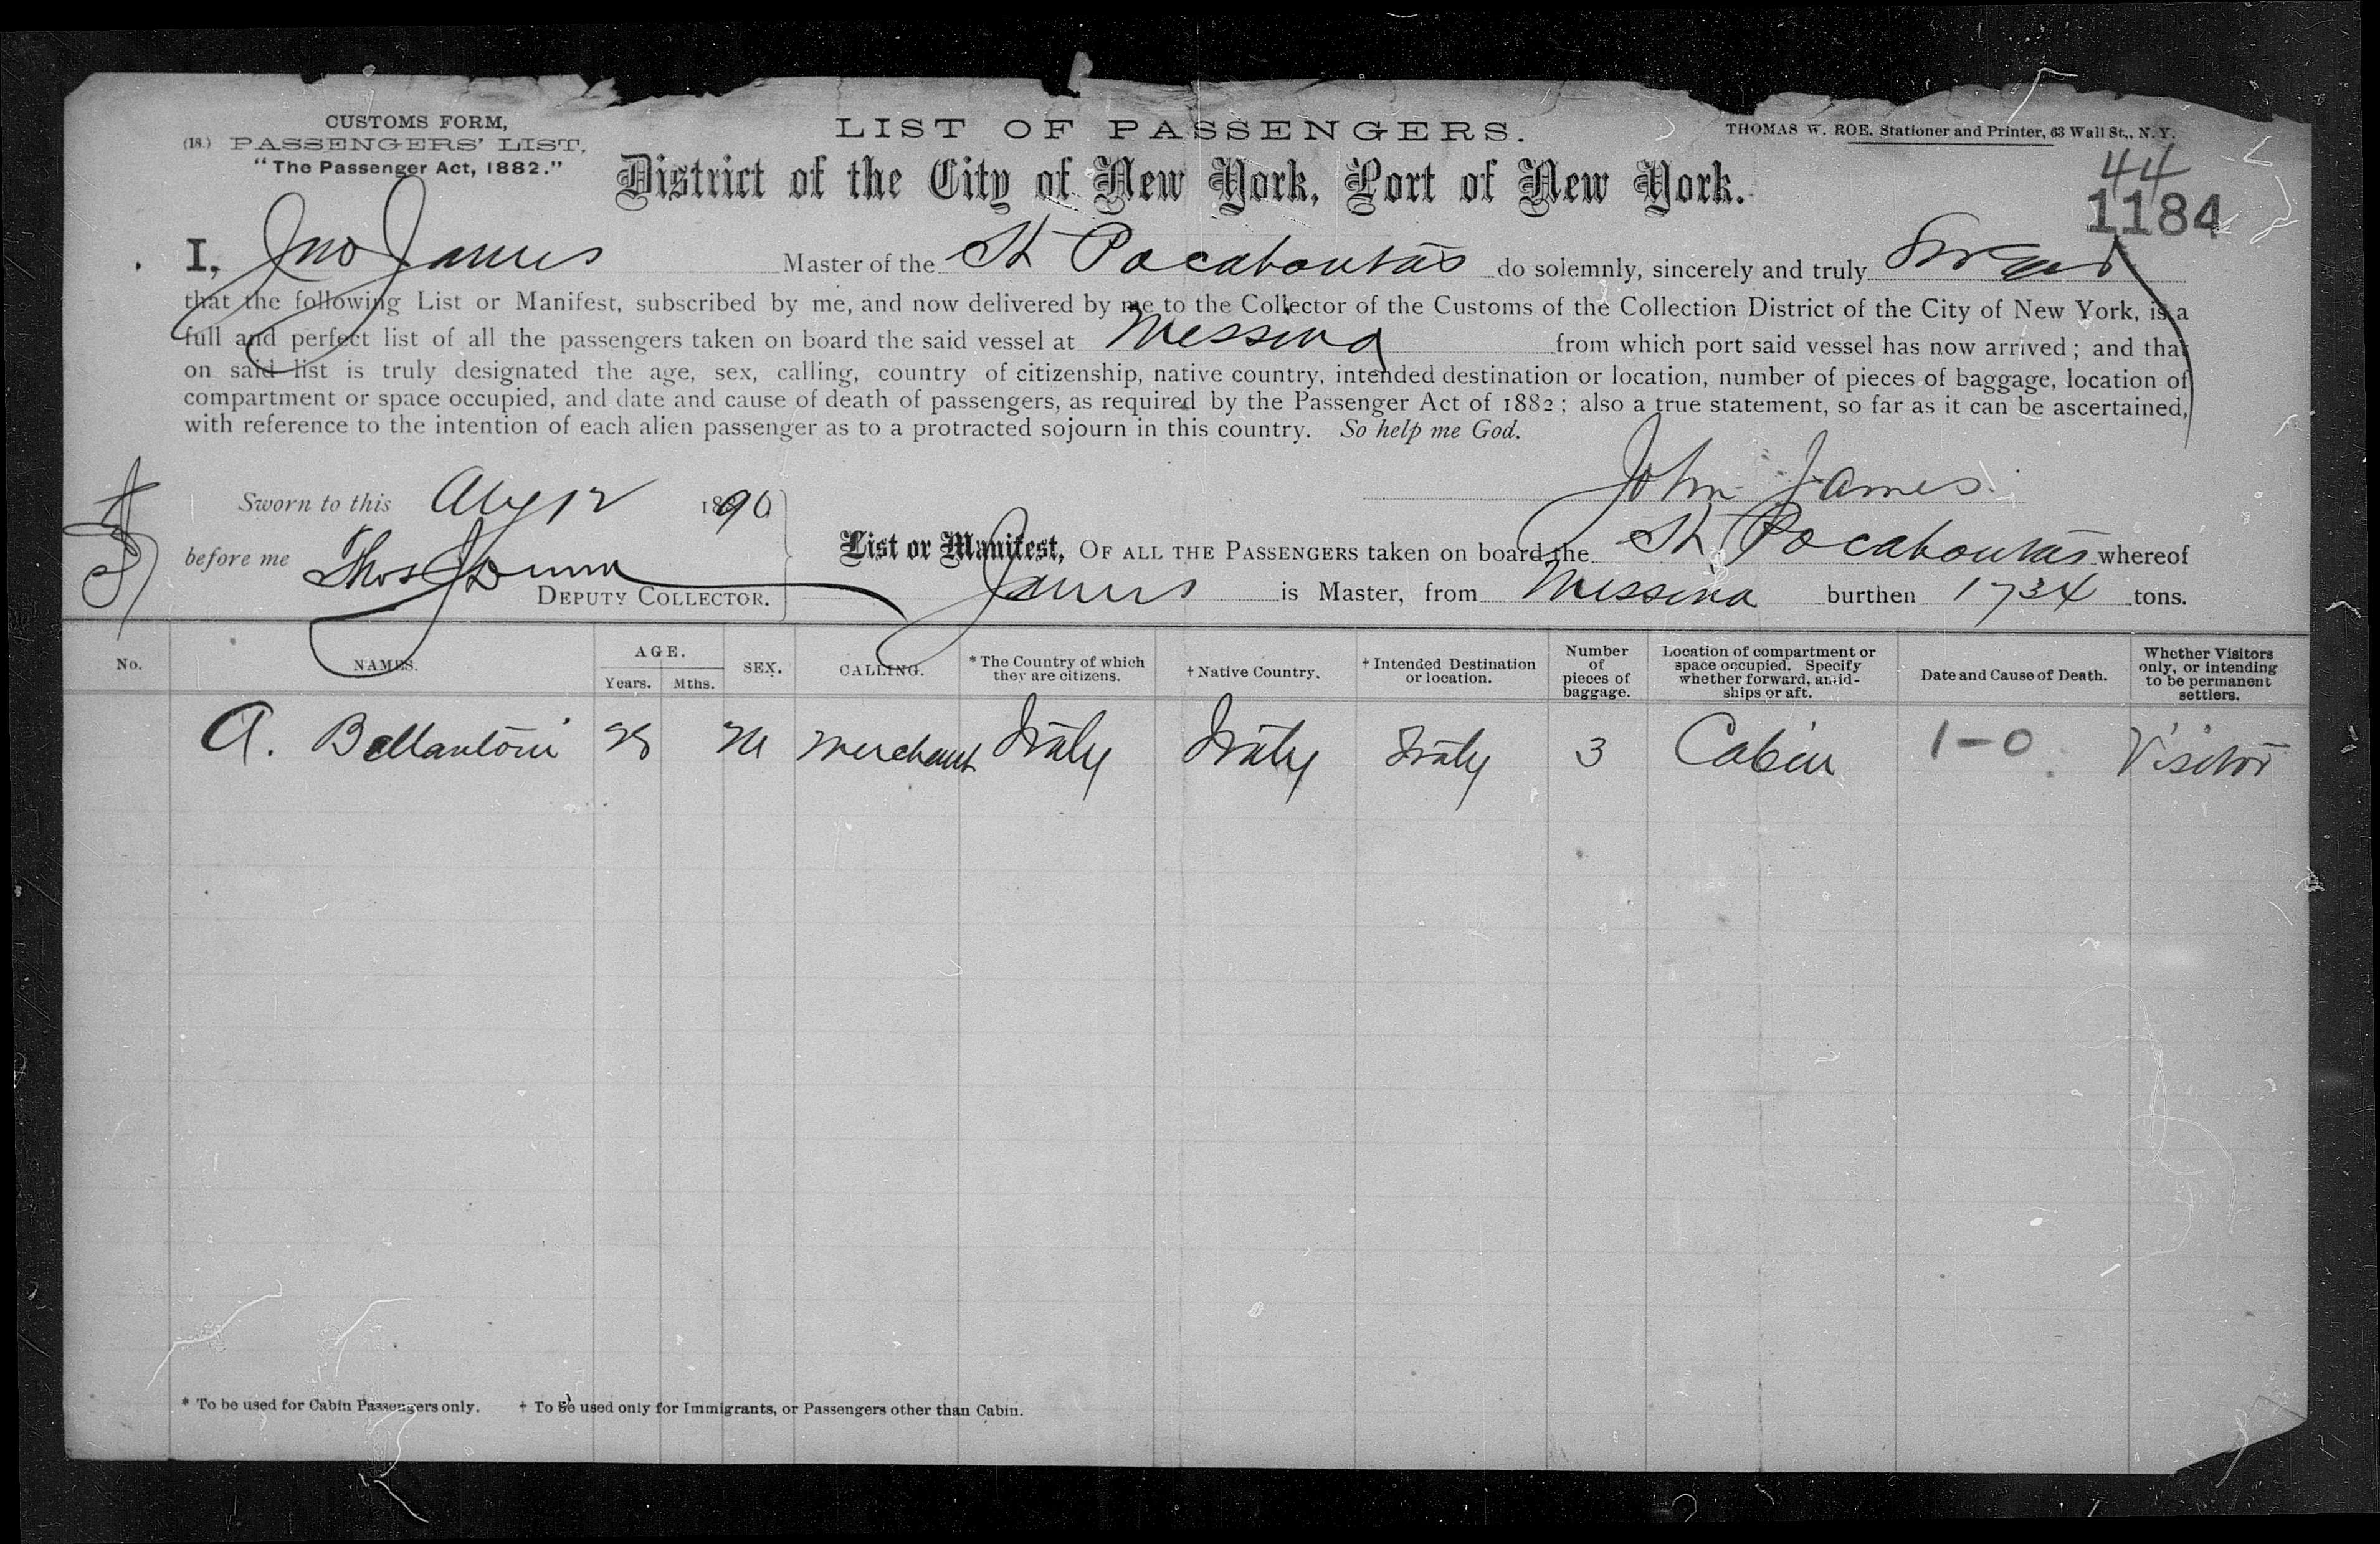 CUSTOMS FORM,
(18.) PASSENGERS' LIST,
"The Passenger Act, 1882."
LIST OF PASSENGERS.
THOMAS W. ROE, Stationer and Printer, 63 Wall St., N.Y.
District of the City of New York, Port of New York.
44
1184
I, Jno James Master of the St Pocahontas do solemnly, sincerely and truly Swear
that the following List or Manifest, subscribed by me, and now delivered by me to the Collector of the Customs of the Collection District of the City of New York, is a
full and perfect list of all the passengers taken on board the said vessel at Messina from which port said vessel has now arrived; and that
on said list is truly designated the age, sex, calling, country of citizenship, native country, intended destination or location, number of pieces of baggage, location of
compartment or space occupied, and date and cause of death of passengers, as required by the Passenger Act of 1882; also a true statement, so far as it can be ascertained,
with reference to the intention of each alien passenger as to a protracted sojourn in this country. So help me God.
John James
Sworn to this Aug 12 1890
before me Thos J Dunn
DEPUTY COLLECTOR.
List or Manifest, OF ALL THE PASSENGERS taken on board the St Pocahontas whereof
James is Master, from Messina burthen 1734 tons.
No. NAMES. AGE. Years. Mths. SEX. CALLING. * The Country of which they are citizens. † Native Country. † Intended Destination or location. Number of pieces of baggage. Location of compartment or space occupied. Specify whether forward, amidships or aft. Date and Cause of Death. Whether Visitors only, or intending to be permanent settlers.
A. Bellantoni 28 M Merchant Italy Italy Italy 3 Cabin 1-0 Visitor
* To be used for Cabin Passengers only. † To be used only for Immigrants, or Passengers other than Cabin.